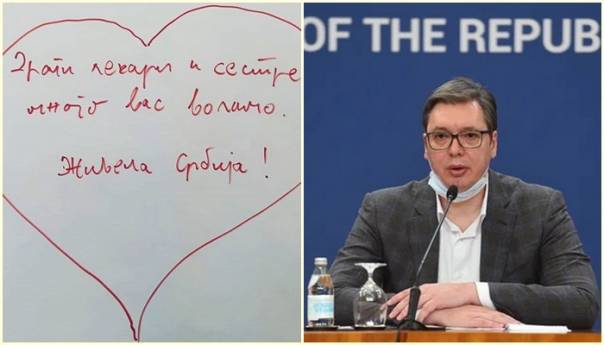 Драги лекари и сестре
много вас волимо.
Живела Србија!
OF THE REPUB